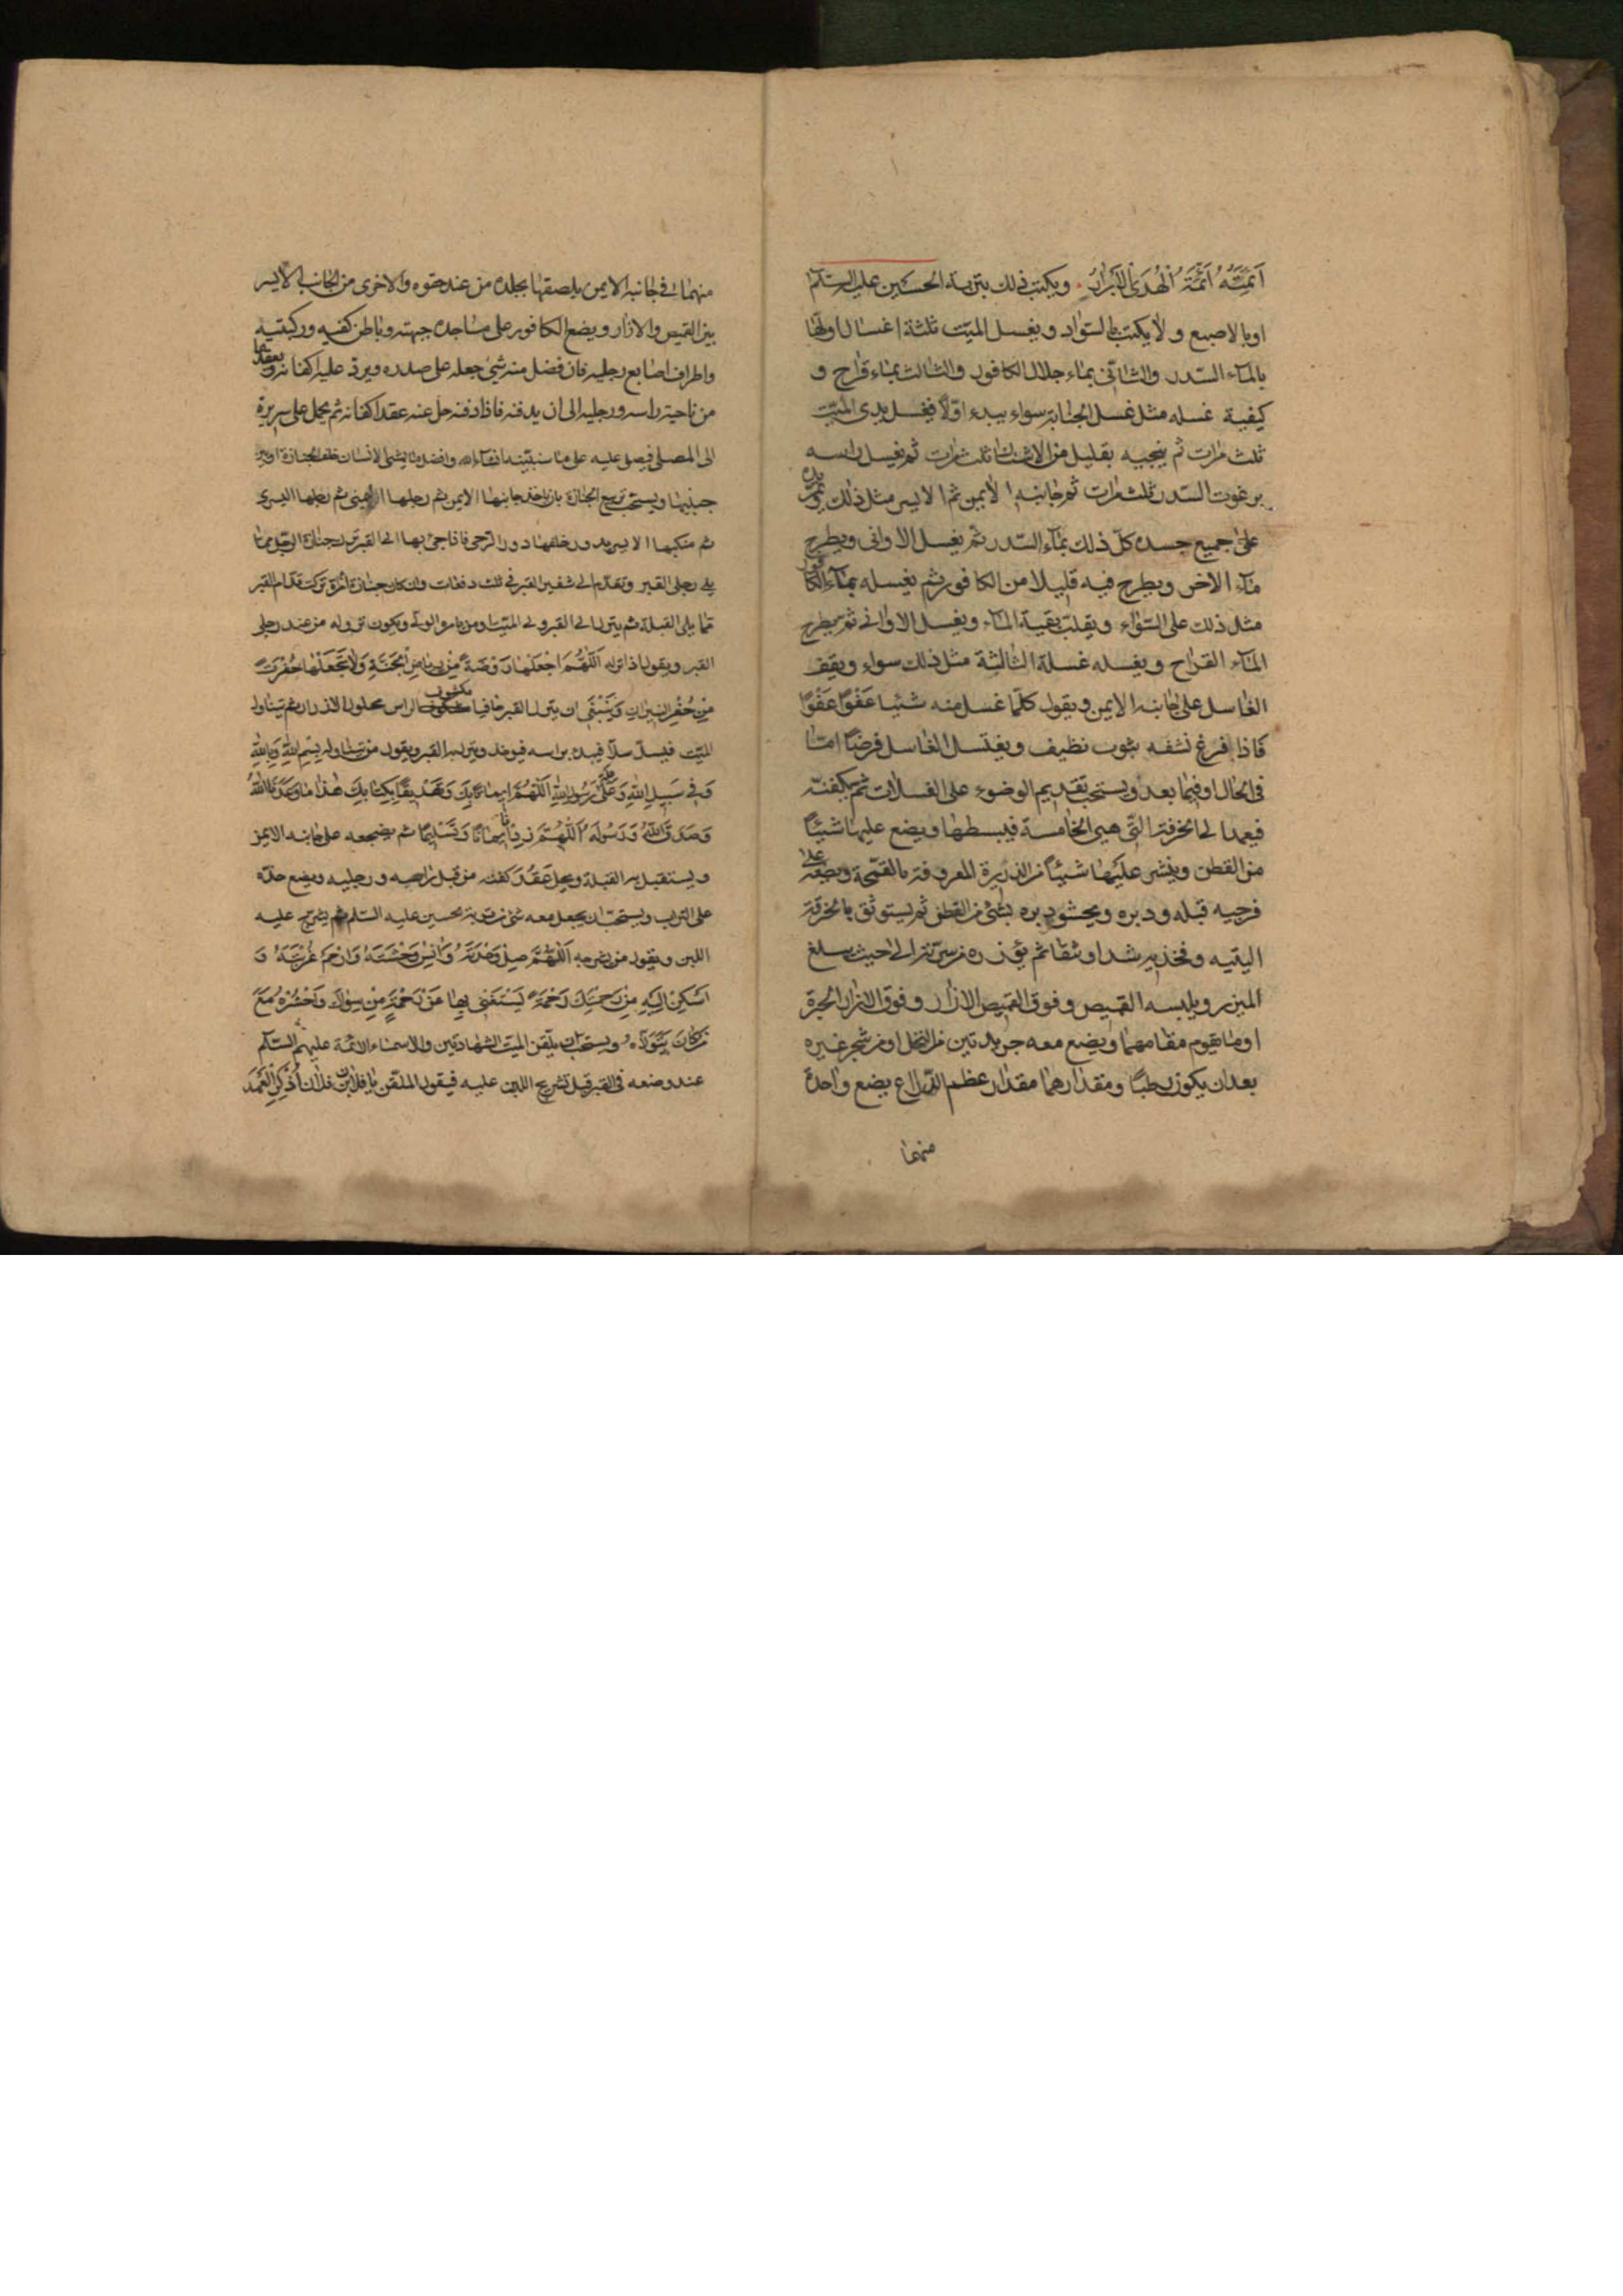 اَئِمَّتُهُ اَئِمَّةُ الْهُدَى الْاَبْرَارُ. ويكتب ذلك بتربة الحسين عليه السلام
او بالاصبع ولا يكتب بالسواد ويغسل الميت ثلثة اغسال اولها
بالماء السدر والثانى بماء جلال الكافور والثالث بماء قراح و
كيفية غسله مثل غسل الجنابة سواء يبدء اولا فيغسل يدى الميت
ثلث مرات ثم ينجيه بقليل من الاشنان ثلث مرات ثم يغسل راسه
برغوت السدر ثلث مرات ثم جانبه الايمن ثم الايسر مثل ذلك ويمر يده
على جميع جسده كل ذلك بماء السدر ثم يغسل الاوانى ويطرح
ماء الاخر ويطرح فيه قليلا من الكافور ثم يغسله بماء الكافور
مثل ذلك على السواء ويقلب بقية الماء ويغسل الاوانى ثم يطرح
الماء القراح ويغسله غسلة الثالثة مثل ذلك سواء ويقف
الغاسل على جانبه الايمن ويقول كلما غسل منه شيئا عَفْوًا عَفْوًا
فاذا فرغ نشفه بثوب نظيف ويغتسل الغاسل فرضا اما
فى الحال او فيما بعد ويستحب تقديم الوضوء على الغسلات ثم يكفنه
فيعمد الى الخرقة التى هى الخامسة فيبسطها ويضع عليها شيئا
من القطن وينشر عليها شيئا من الذريرة المعروفة بالقمحة ويضعه على
فرجيه قبله ودبره ويحشو دبره بشئ من القطن ثم يستوثق بالخرقة
اليتيه وفخذيه شدا وثقا ثم يؤزره من سرته الى حيث يبلغ
الميزر ويلبسه القميص وفوق القميص الازار وفوق الازار الحبرة
او ما يقوم مقامهما ويضع معه جريدتين من النخل او من شجر غيره
بعد ان يكون رطبا ومقدارهما مقدار عظم الذراع يضع واحدة
منهما
منهما فى جانبه الايمن يلصقها بجلده من عند حقوه والاخرى من الجانب الايسر
بين القميص والازار ويضع الكافور على مساجده جبهته وباطن كفيه وركبتيه
واطراف اصابع رجليه فان فضل منه شئ جعله على صدره ويرد عليه اكفانه ويعقدها
من ناحية راسه ورجليه الى ان يدفنه فاذا دفنه حل عنه عقد اكفانه ثم يحمل على سريره
الى المصلى فيصلى عليه على ما سنبينه انشاء الله وافضل ما يمشى الانسان خلف الجنازة او بين
جنبيها ويستحب تربيع الجنازة بان ياخذ جانبها الايمن ثم رجلها اليمنى ثم رجلها اليسرى
ثم منكبها الايسر يدور خلفها دور الرحى فاذا جئ بها الى القبر ترك جنازة الرجل مما
يلى رجلى القبر وتقدم الى شفير القبر فى ثلث دفعات وان كان جنازة امرأة تركت قدام القبر
مما يلى القبلة ثم ينزل الى القبر ولى الميت او من يامره الولى ويكون نزوله من عند رجلى
القبر ويقول اذا نزله اَللّٰهُمَّ اجْعَلْهَا رَوْضَةً مِنْ رِيَاضِ الْجَنَّةِ وَلَا تَجْعَلْهَا حُفْرَةً
مِنْ حُفَرِ النِّيرَانِ وَيَنْبَغِى ان ينزل القبر حافيا مكشوف الراس محلول الازرار ثم يتناول
الميت فيسل سلا فيبدء براسه فيوخذ وينزل به القبر ويقول من يتناوله بِسْمِ اللّٰهِ وَبِاللّٰهِ
وَفِى سَبِيلِ اللّٰهِ وَعَلَى مِلَّةِ رَسُولِ اللّٰهِ اَللّٰهُمَّ اِيمَانًا بِكَ وَتَصْدِيقًا بِكِتَابِكَ هٰذَا مَا وَعَدَنَا اللّٰهُ
وَصَدَقَ اللّٰهُ وَرَسُولُهُ اَللّٰهُمَّ زِدْنَا اِيمَانًا وَتَسْلِيمًا ثم يضجعه على جانبه الايمن
ويستقبل به القبلة ويحل عقد كفنه من قبل راسه ورجليه ويضع خده
على التراب ويستحب ان يجعل معه شئ من تربة الحسين عليه السلام ثم يشرج عليه
اللبن ويقول من يشرجه اَللّٰهُمَّ صِلْ وَحْدَتَهُ وَاٰنِسْ وَحْشَتَهُ وَارْحَمْ غُرْبَتَهُ وَ
اَسْكِنْ اِلَيْهِ مِنْ رَحْمَتِكَ رَحْمَةً يَسْتَغْنِى بِهَا عَنْ رَحْمَةِ مَنْ سِوَاكَ وَاحْشُرْهُ مَعَ
مَنْ كَانَ يَتَوَلَّاهُ ويستحب ان يلقن الميت الشهادتين والاسماء الائمة عليهم السلام
عند وضعه فى القبر قبل تشريج اللبن عليه فيقول الملقن يا فلان بن فلان اُذْكُرِ الْعَهْدَ